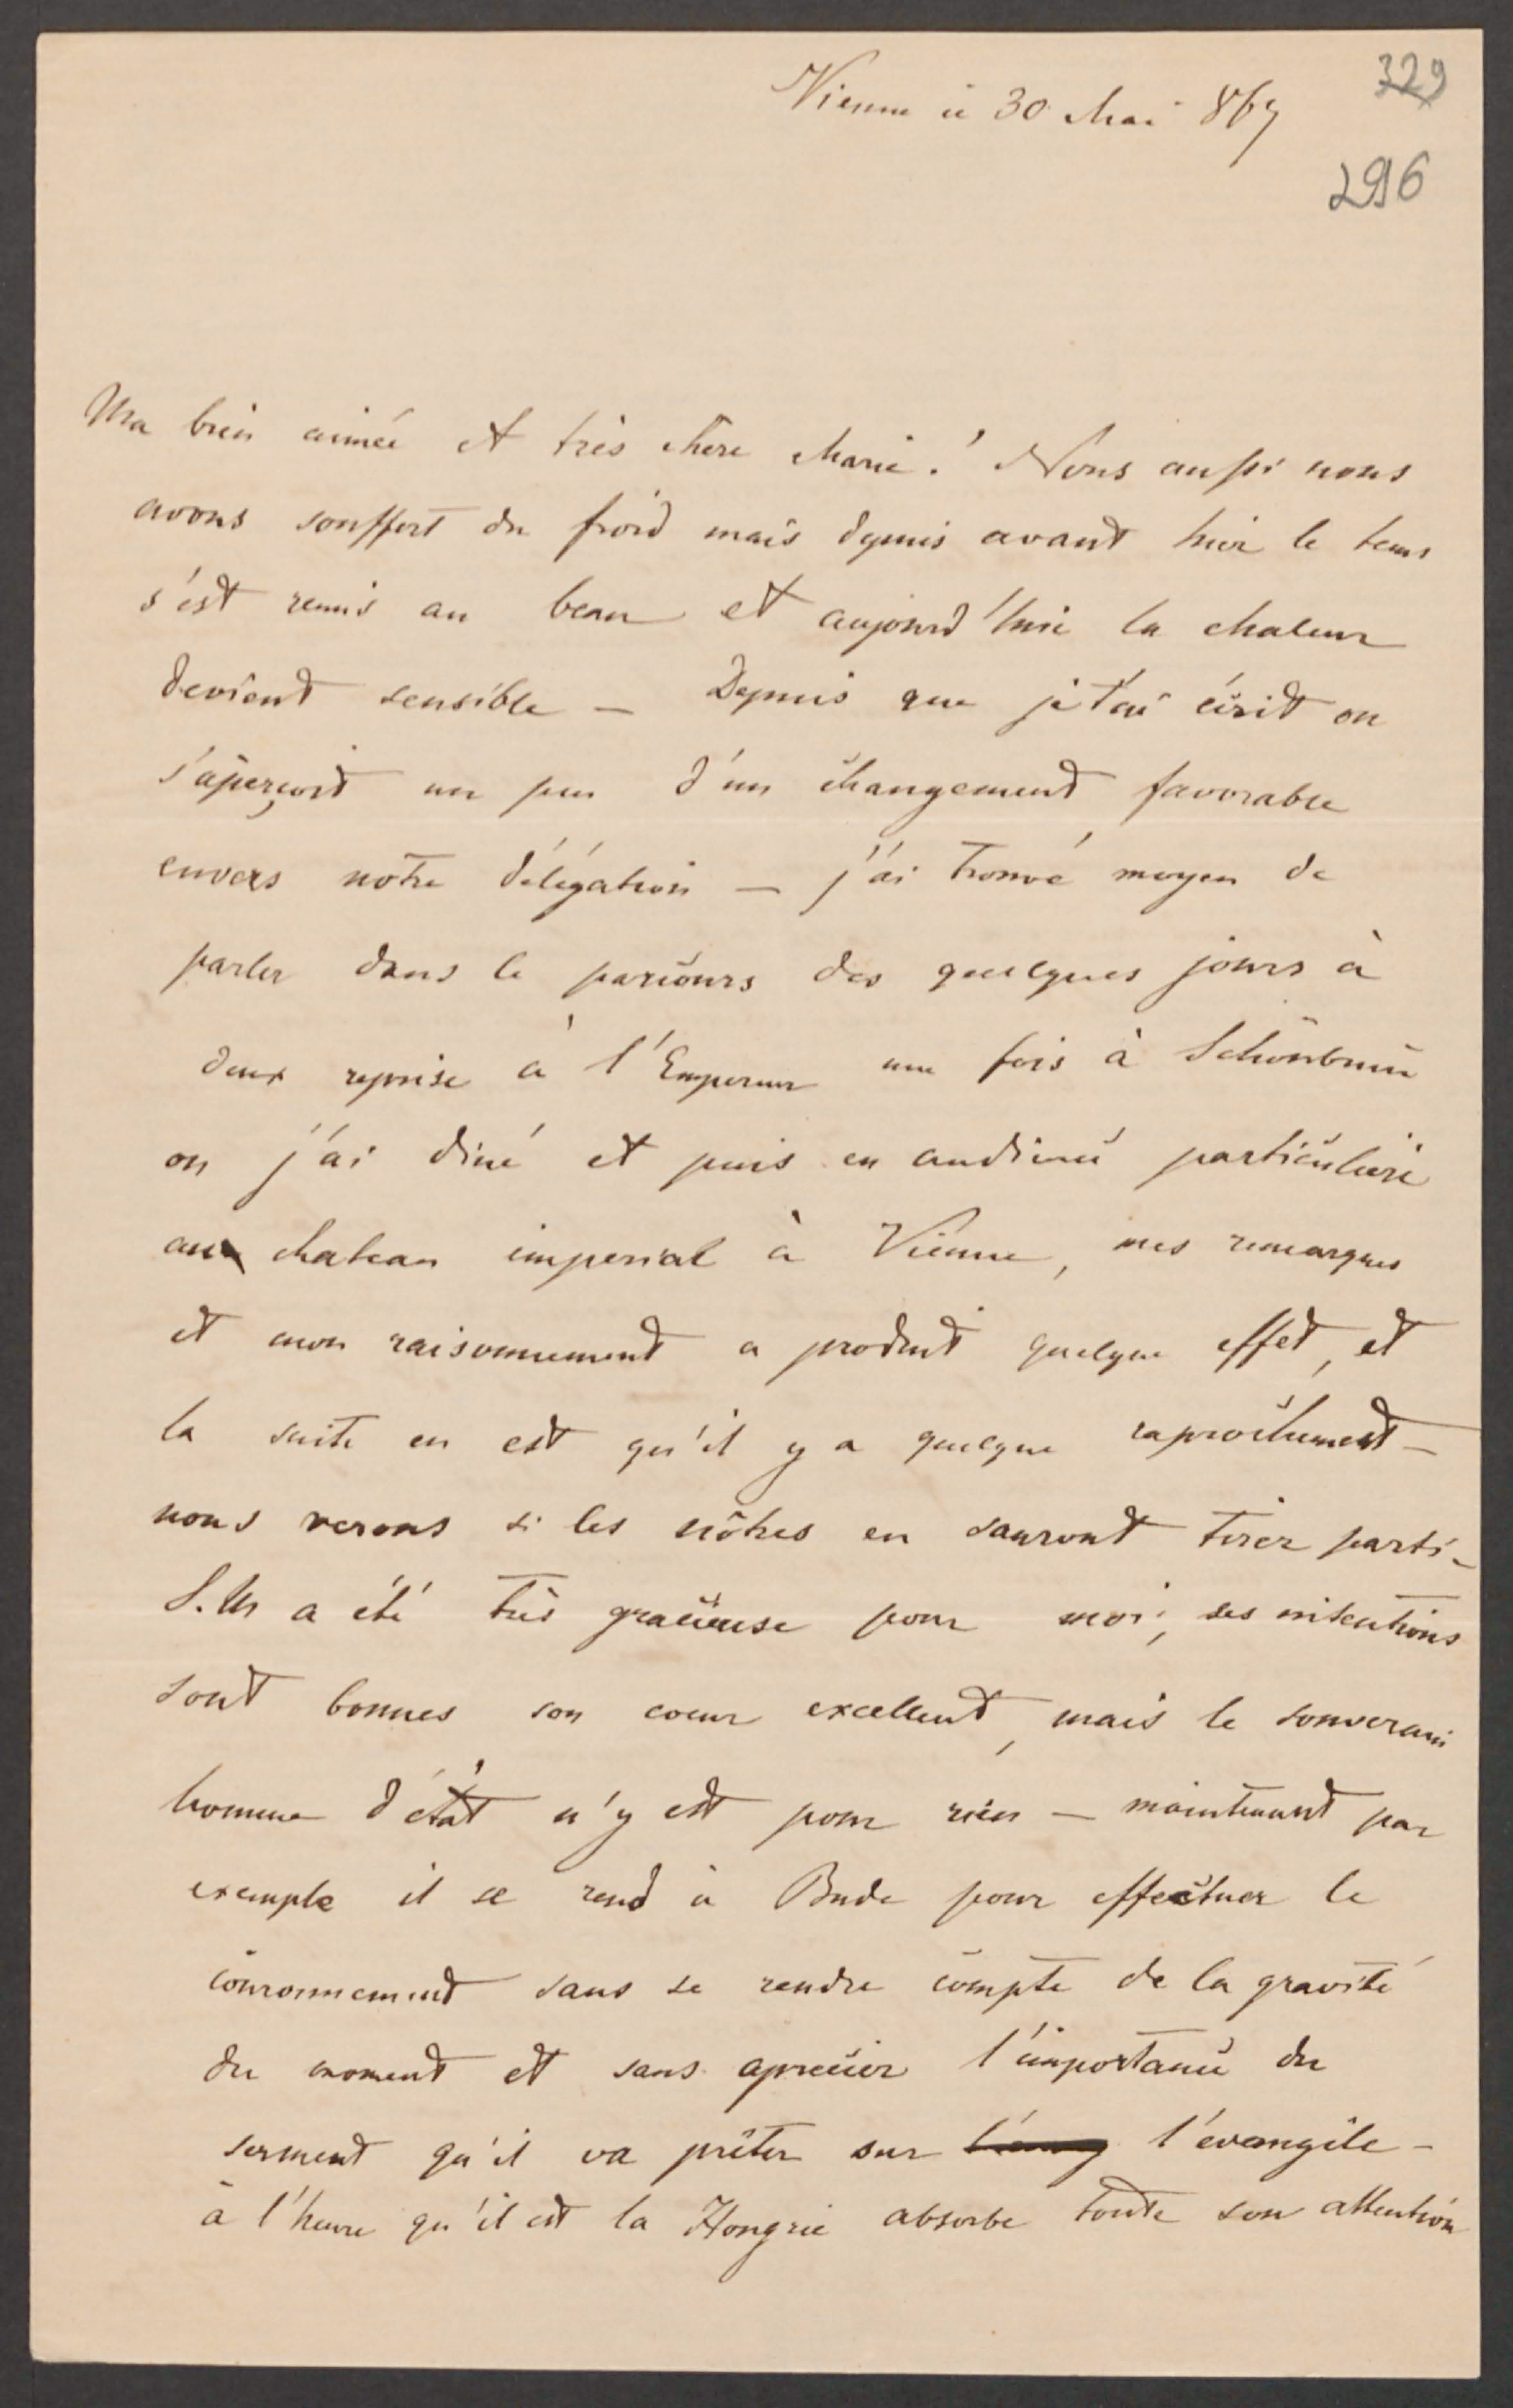 Vienne ce 30 Mai 867
329
296
Ma bien aimée et très chère Marie! Nous aussi nous
avons souffert du froid mais depuis avant hier le tems
s'est remis au beau et aujourd'hui la chaleur
devient sensible — Depuis que je t'ai écrit on
s'aperçoit un peu d'un changement favorable
envers notre délégation — j'ai trouvé moyen de
parler dans le parcours des quelques jours à
deux reprise à l'Empereur une fois à Schönbrun
ou j'ai diné et puis en audience particulière
au chateau imperial à Vienne, mes remarques
et mon raisonnement a produit quelque effet, et
la suite en est qu'il y a quelque raprochement —
nous verons si les nôtres en sauront tirer parti —
S. M a été très gracieuse pour moi, ses intentions
sont bonnes son coeur excellent, mais le souverain
homme d'état n'y est pour rien — maintenant par
exemple il se rend à Bude pour effectuer le
couronnement sans se rendre compte de la gravité
du moment et sans aprecier l'importance du
serment qu'il va prêter sur l'évangile —
à l'heure qu'il est la Hongrie absorbe toute son attention